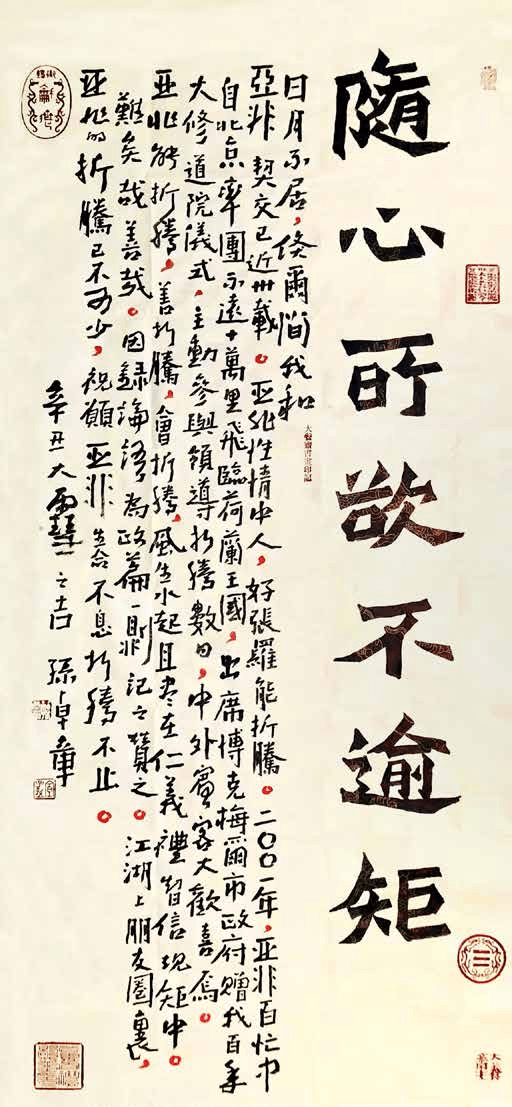 隨心所欲不逾矩
日月不居，倏爾間我和
亞非契交已近卅載。亞非性情中人，好張羅能折騰。二〇〇一年，亞非百忙中
自北京率團不遠十萬里飛臨荷蘭王國，出席博克梅爾市政府贈我百年
大修道院儀式，主動參與領導折騰數日，中外賓客大歡喜焉。
亞非能折騰，善折騰，會折騰，風生水起且盡在仁義禮智信規矩中。
難矣哉善哉。因錄論語為政篇一則記之贊之。江湖上朋友圈裏，
亞非的折騰已不可少，祝願亞非生命不息折騰不止。
辛丑大雪之吉 孫卓章
大修齋書畫印記